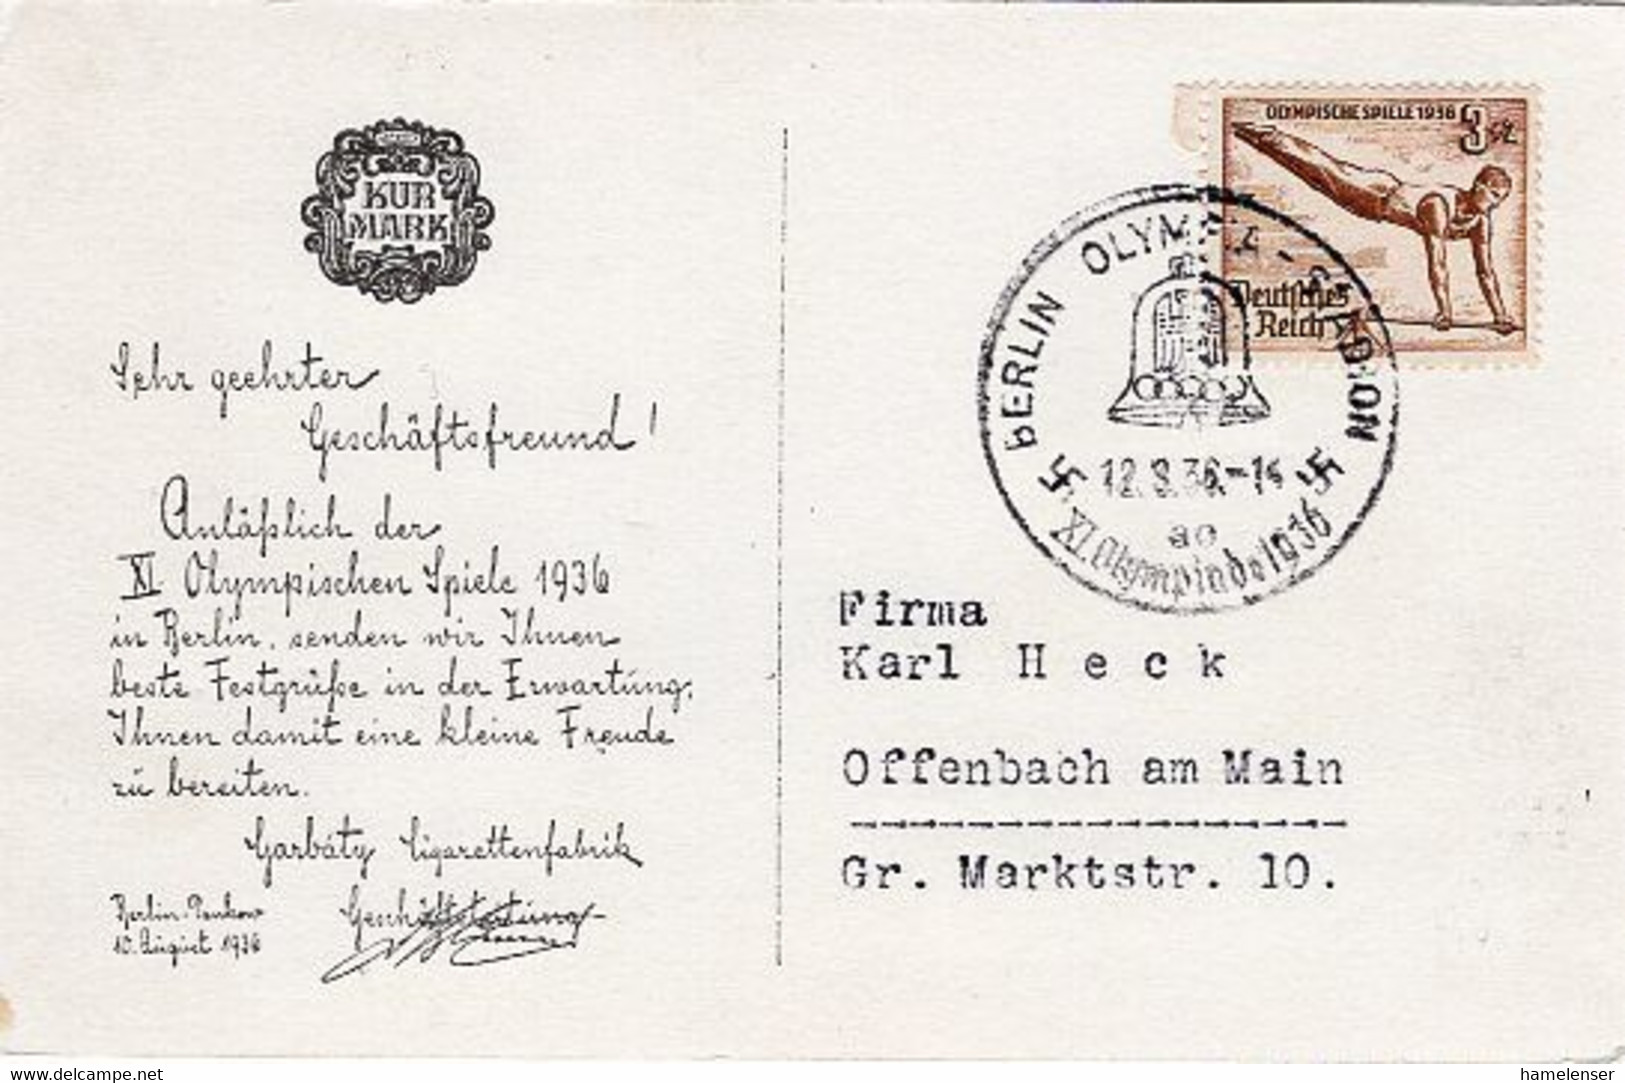 KUR
MARK
Sehr geehrter
Geschäftsfreund!
Anläßlich der
XI. Olympischen Spiele 1936
in Berlin, senden wir Ihnen
beste Festgrüße in der Erwartung,
Ihnen damit eine kleine Freude
zu bereiten.
Garbáty Cigarettenfabrik
Geschäftsleitung
Berlin-Pankow
10. August 1936
OLYMPISCHE SPIELE 1936 3
Deutsches
Reich
BERLIN OLYMPIA-STADION
12.8.36.-14
ao
XI. Olympiade 1936
Firma
Karl Heck
Offenbach am Main
Gr. Marktstr. 10.
www.delcampe.net
hamelenser